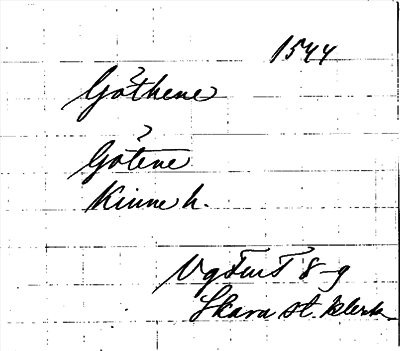 1544
Göthene
Götene
Kinne h.
VgFmT 8-9
Skara st. klerk.